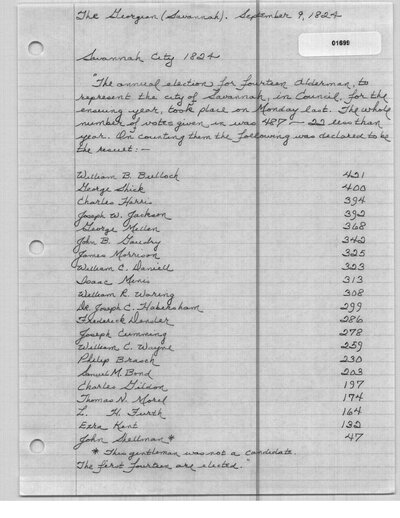 The Georgian (Savannah). September 9, 1824
01699
Savannah City 1824
"The annual election for fourteen Alderman, to
represent the city of Savannah, in Council, for the
ensuing year, took place on Monday last. The whole
number of votes given in was 487 — 22 less than
year. On counting them the following was declared to be
the result: —
William B. Bulloch 421
George Shick 400
Charles Harris 394
Joseph W. Jackson 392
George Millen 368
John B. Gaudry 342
James Morrison 325
William C. Daniell 323
Isaac Minis 313
William R. Waring 308
Dr. Joseph C. Habersham 299
Frederick Densler 286
Joseph Cumming 278
William C. Wayne 259
Philip Brasch 230
Samuel M. Bond 203
Charles Gildon 197
Thomas N. Morel 174
L. H. Furth 164
Ezra Kent 132
John Shellman * 47
* This gentleman was not a candidate.
The first fourteen are elected."